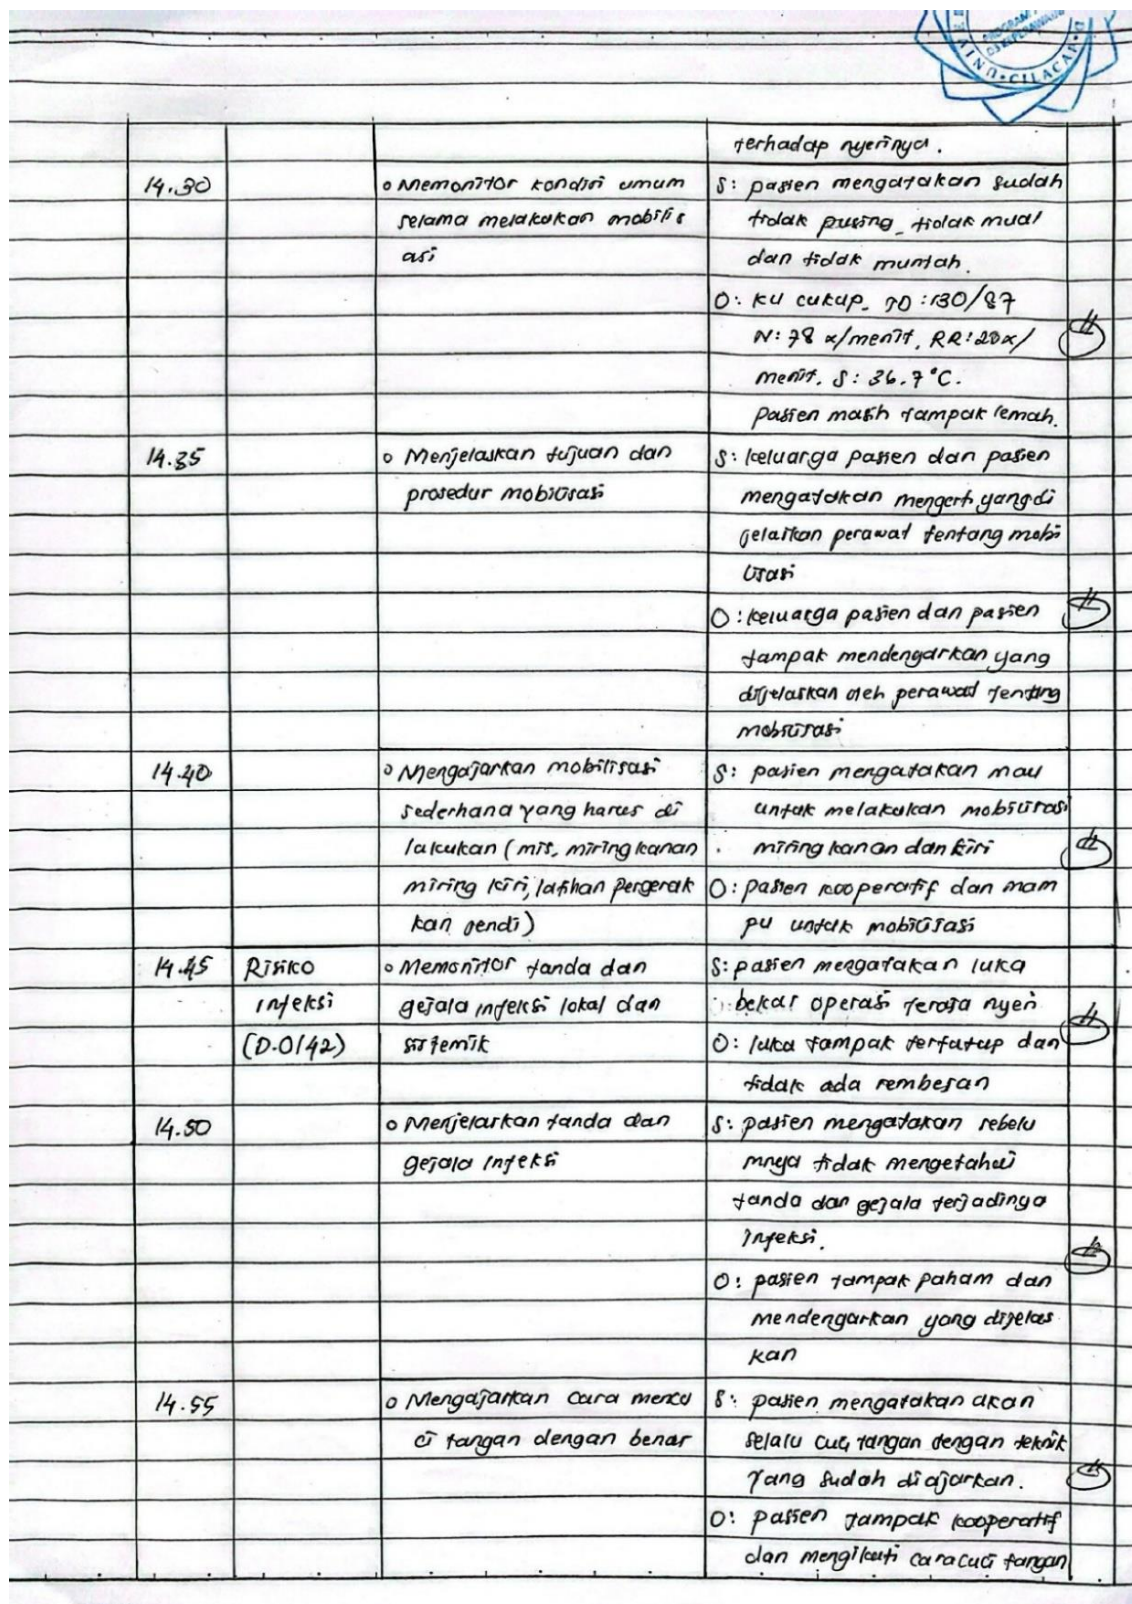 PROGRAM
D3 KEPERAWATAN
CILACAP
terhadap nyerinya.
14.30
o Memonitor kondisi umum
selama melakukan mobilis
asi
S: pasien mengatakan sudah
tidak pusing, tidak mual
dan tidak muntah.
O: KU cukup, TD : 130/87
N: 78 x/menit, RR: 20x/
menit, S: 36.7°C.
pasien masih tampak lemah.
14.35
o Menjelaskan tujuan dan
prosedur mobilisasi
S: keluarga pasien dan pasien
mengatakan mengerti yang di
jelaskan perawat tentang mobi
lisasi
O: keluarga pasien dan pasien
tampak mendengarkan yang
dijelaskan oleh perawat tentang
mobilisasi
14.40
o Mengajarkan mobilisasi
sederhana yang harus di
lakukan (mis. miring kanan
miring kiri, latihan pergerak
kan sendi)
S: pasien mengatakan mau
untuk melakukan mobilisasi
miring kanan dan kiri
O: pasien kooperatif dan mam
pu untuk mobilisasi
14.45
Risiko
infeksi
(D.0142)
o Memonitor tanda dan
gejala infeksi lokal dan
sistemik
S: pasien mengatakan luka
bekas operasi terasa nyeri
O: luka tampak tertutup dan
tidak ada rembesan
14.50
o Menjelaskan tanda dan
gejala infeksi
S: pasien mengatakan sebelu
mnya tidak mengetahui
tanda dan gejala terjadinya
infeksi.
O: pasien tampak paham dan
mendengarkan yang dijelas
kan
14.55
o Mengajarkan cara mencu
ci tangan dengan benar
S: pasien mengatakan akan
selalu cuci tangan dengan teknik
yang sudah diajarkan.
O: pasien tampak kooperatif
dan mengikuti cara cuci tangan